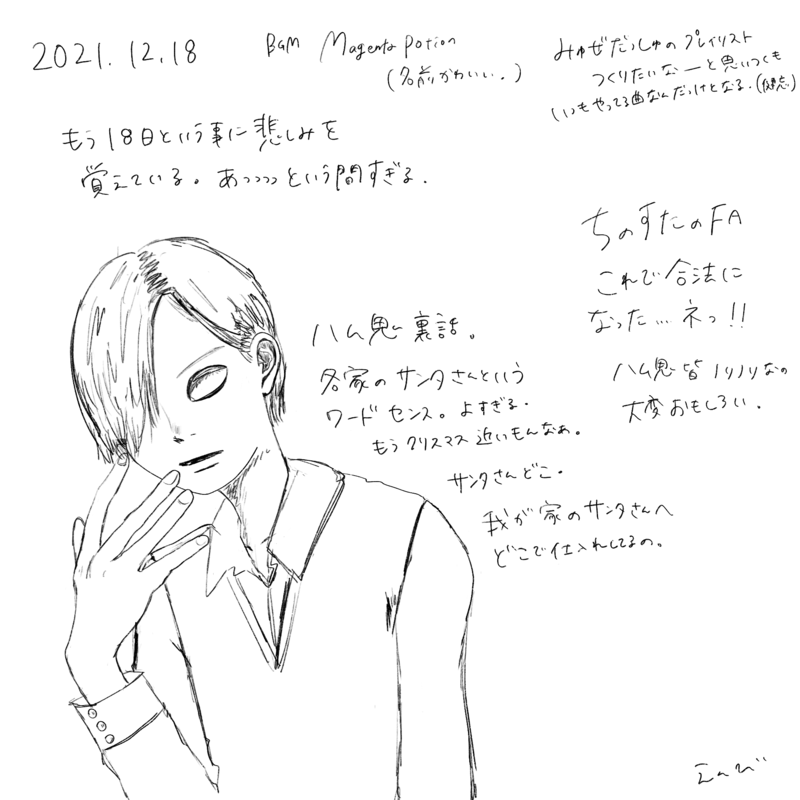 2021.12.18
BGM Magenta Potion
(名前かわいい.)
みゅぜだっしゅのプレイリスト
つくりたいなーと思いつくも
いつもやってる曲なんだっけとなる.
もう18日という事に悲しみを
覚えている。あっっっっという間すぎる.
ちのすたのFA
これで合法に
なった…ネっ!!
ハム鬼 皆ノリノリなの
大変おもしろい.
ハム鬼 裏話。
各家のサンタさんという
ワードセンス。よすぎる.
もうクリスマス近いもんなぁ。
サンタさんどこ。
我が家のサンタさんへ
どこで仕入れしてるの。